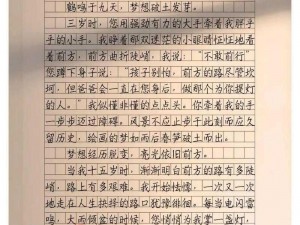 鹤鸣于九天，梦想破土发芽。
三岁时，您用强劲有力的大手牵着我胖乎
乎的小手。我睁着那双迷茫的小眼睛怔怔地看
着前方，前方曲折陡峭，我说：“不敢前行”
您蹲下身子说：“孩子别怕，前方的路尽管坎
坷，但爸爸会一直在您身后，做那个为你提灯
的人。”我似懂非懂的点点头。你牵着我的手一
步步迈过障碍。风景不应止步于此刻而应久
留历史，绘画的梦如雨后春笋破土而出。
梦想经历脱变，亮光依旧前方。
当我十五岁时，渐渐明白前方的路有多陡
峭，路上有多艰难。我开始怯懦，一次又一次
地走在人生抉择的路口犹豫徘徊。每当电闪雷
鸣，大雨倾盆的时候，您悄悄为我掌一盏灯，